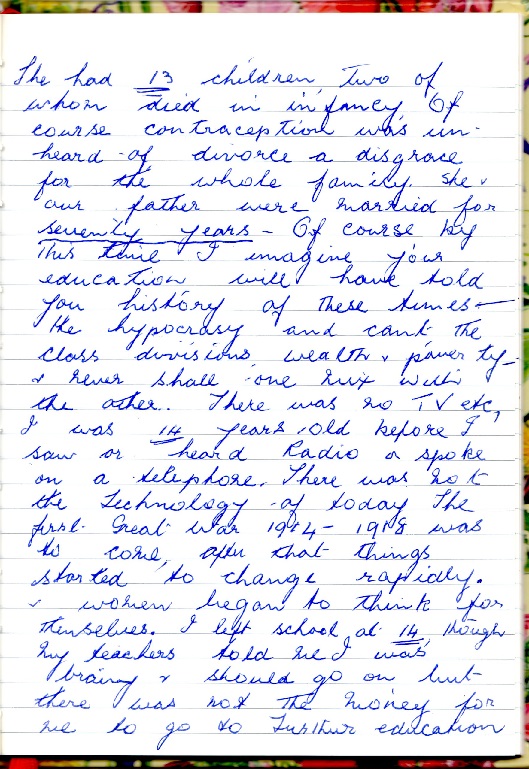 She had 13 children, two of
whom died in infancy Of
course contraception was un-
heard-of divorce a disgrace
for the whole family. She &
our father were married for
seventy years - Of course by
this time I imagine your
education will have told
you history of these times -
the hypocrasy and cant the
class divisions, wealth & paverty -
& never shall one mix with
the other.. There was no TV etc,
I was 14 years old before I
saw or heard Radio or spoke
on a telephone. There was not
the Technology of today The
first Great War 1914 - 1918 was
to come, after that things
started to change rapidly.
& women began to think for
themselves. I left school at 14, though
my teachers told me I was
brainy & should go on but
there was not the money for
me to go to further education